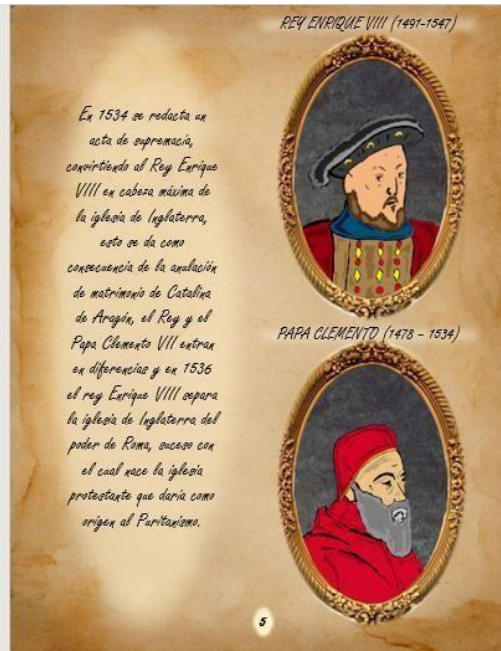 REY ENRIQUE VIII (1491-1547)
En 1534 se redacta un
acta de supremacía,
convirtiendo al Rey Enrique
VIII en cabeza máxima de
la iglesia de Inglaterra,
esto se da como
consecuencia de la anulación
de matrimonio de Catalina
de Aragón, el Rey y el
Papa Clemento VII entran
en diferencias y en 1536
el rey Enrique VIII separa
la iglesia de Inglaterra del
poder de Roma, suceso con
el cual nace la iglesia
protestante que daría como
origen al Puritanismo.
PAPA CLEMENTO (1478 - 1534)
5